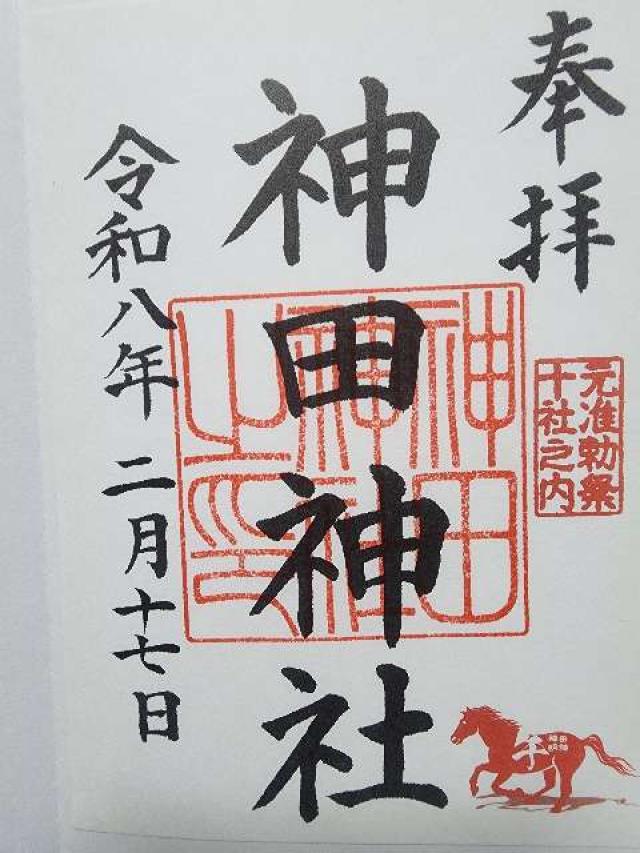 奉拝
元准勅祭
十社之内
神田神社
神田
神社
之印
令和八年 二月十七日
午